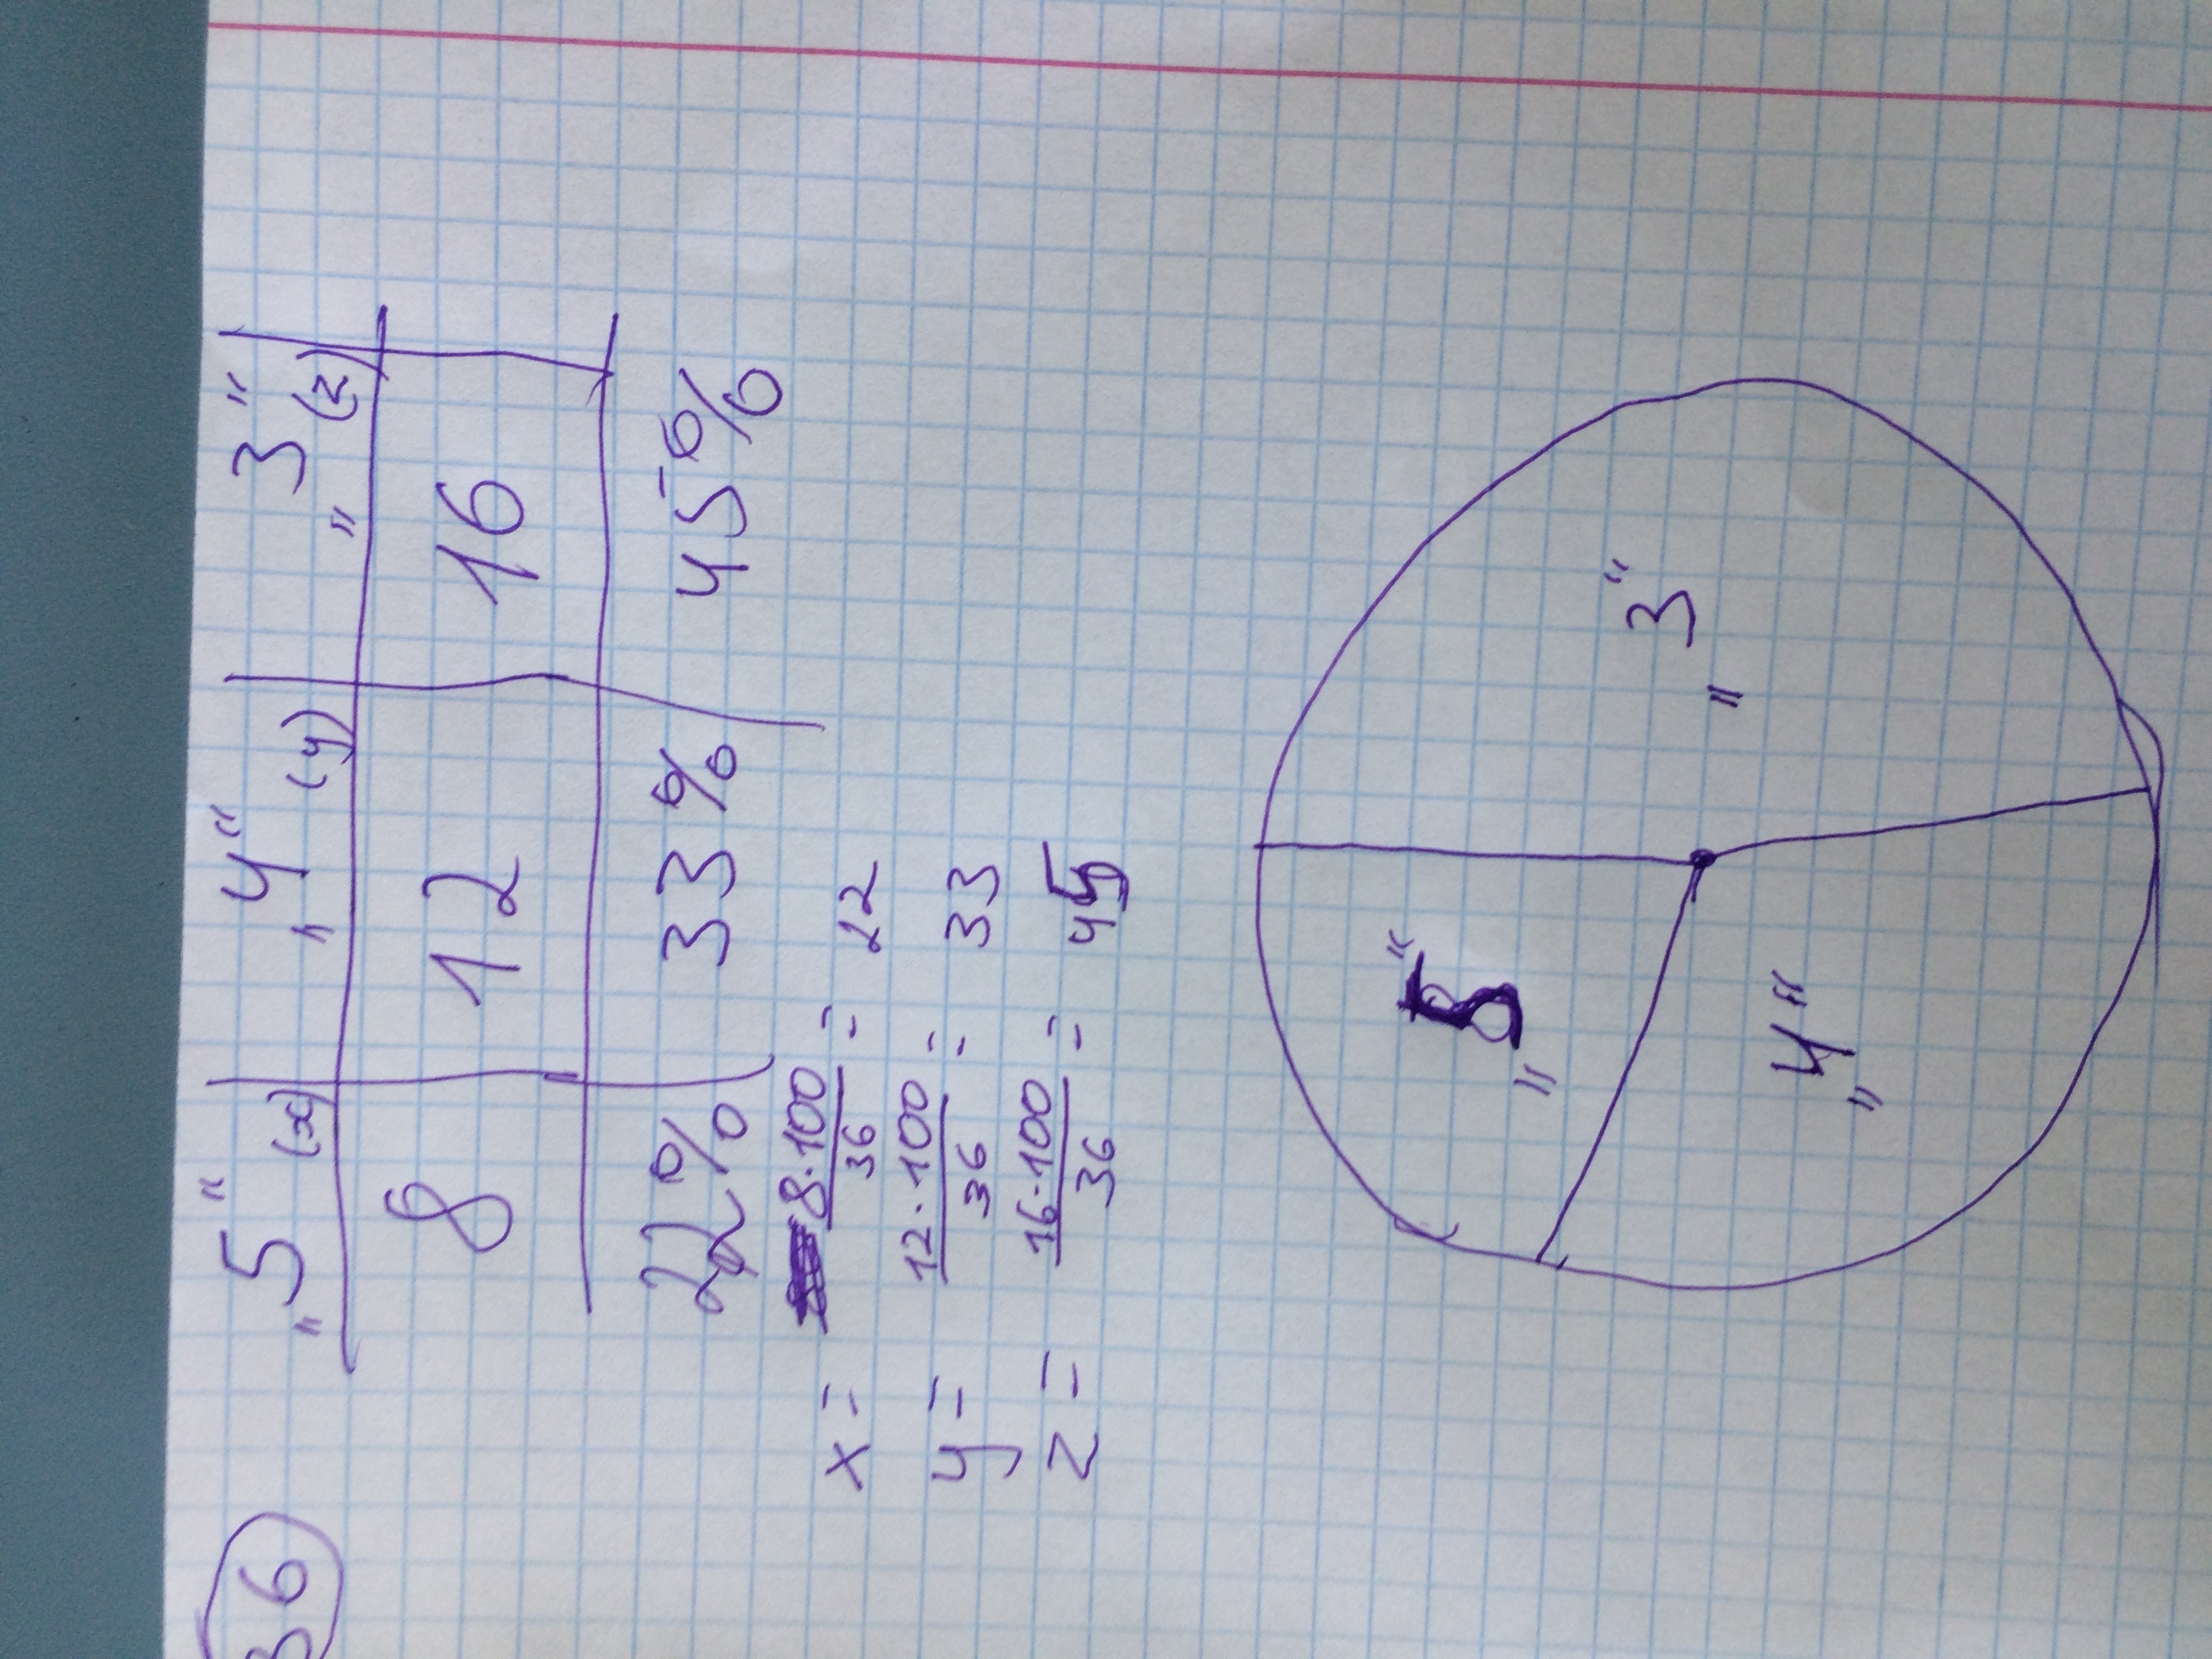 36
„5“ (x) „4“ (y) „3“ (z)
8 12 16
22% 33% 45%
x = 8·100/36 = 22
y = 12·100/36 = 33
z = 16·100/36 = 45
„5“ „3“
„4“